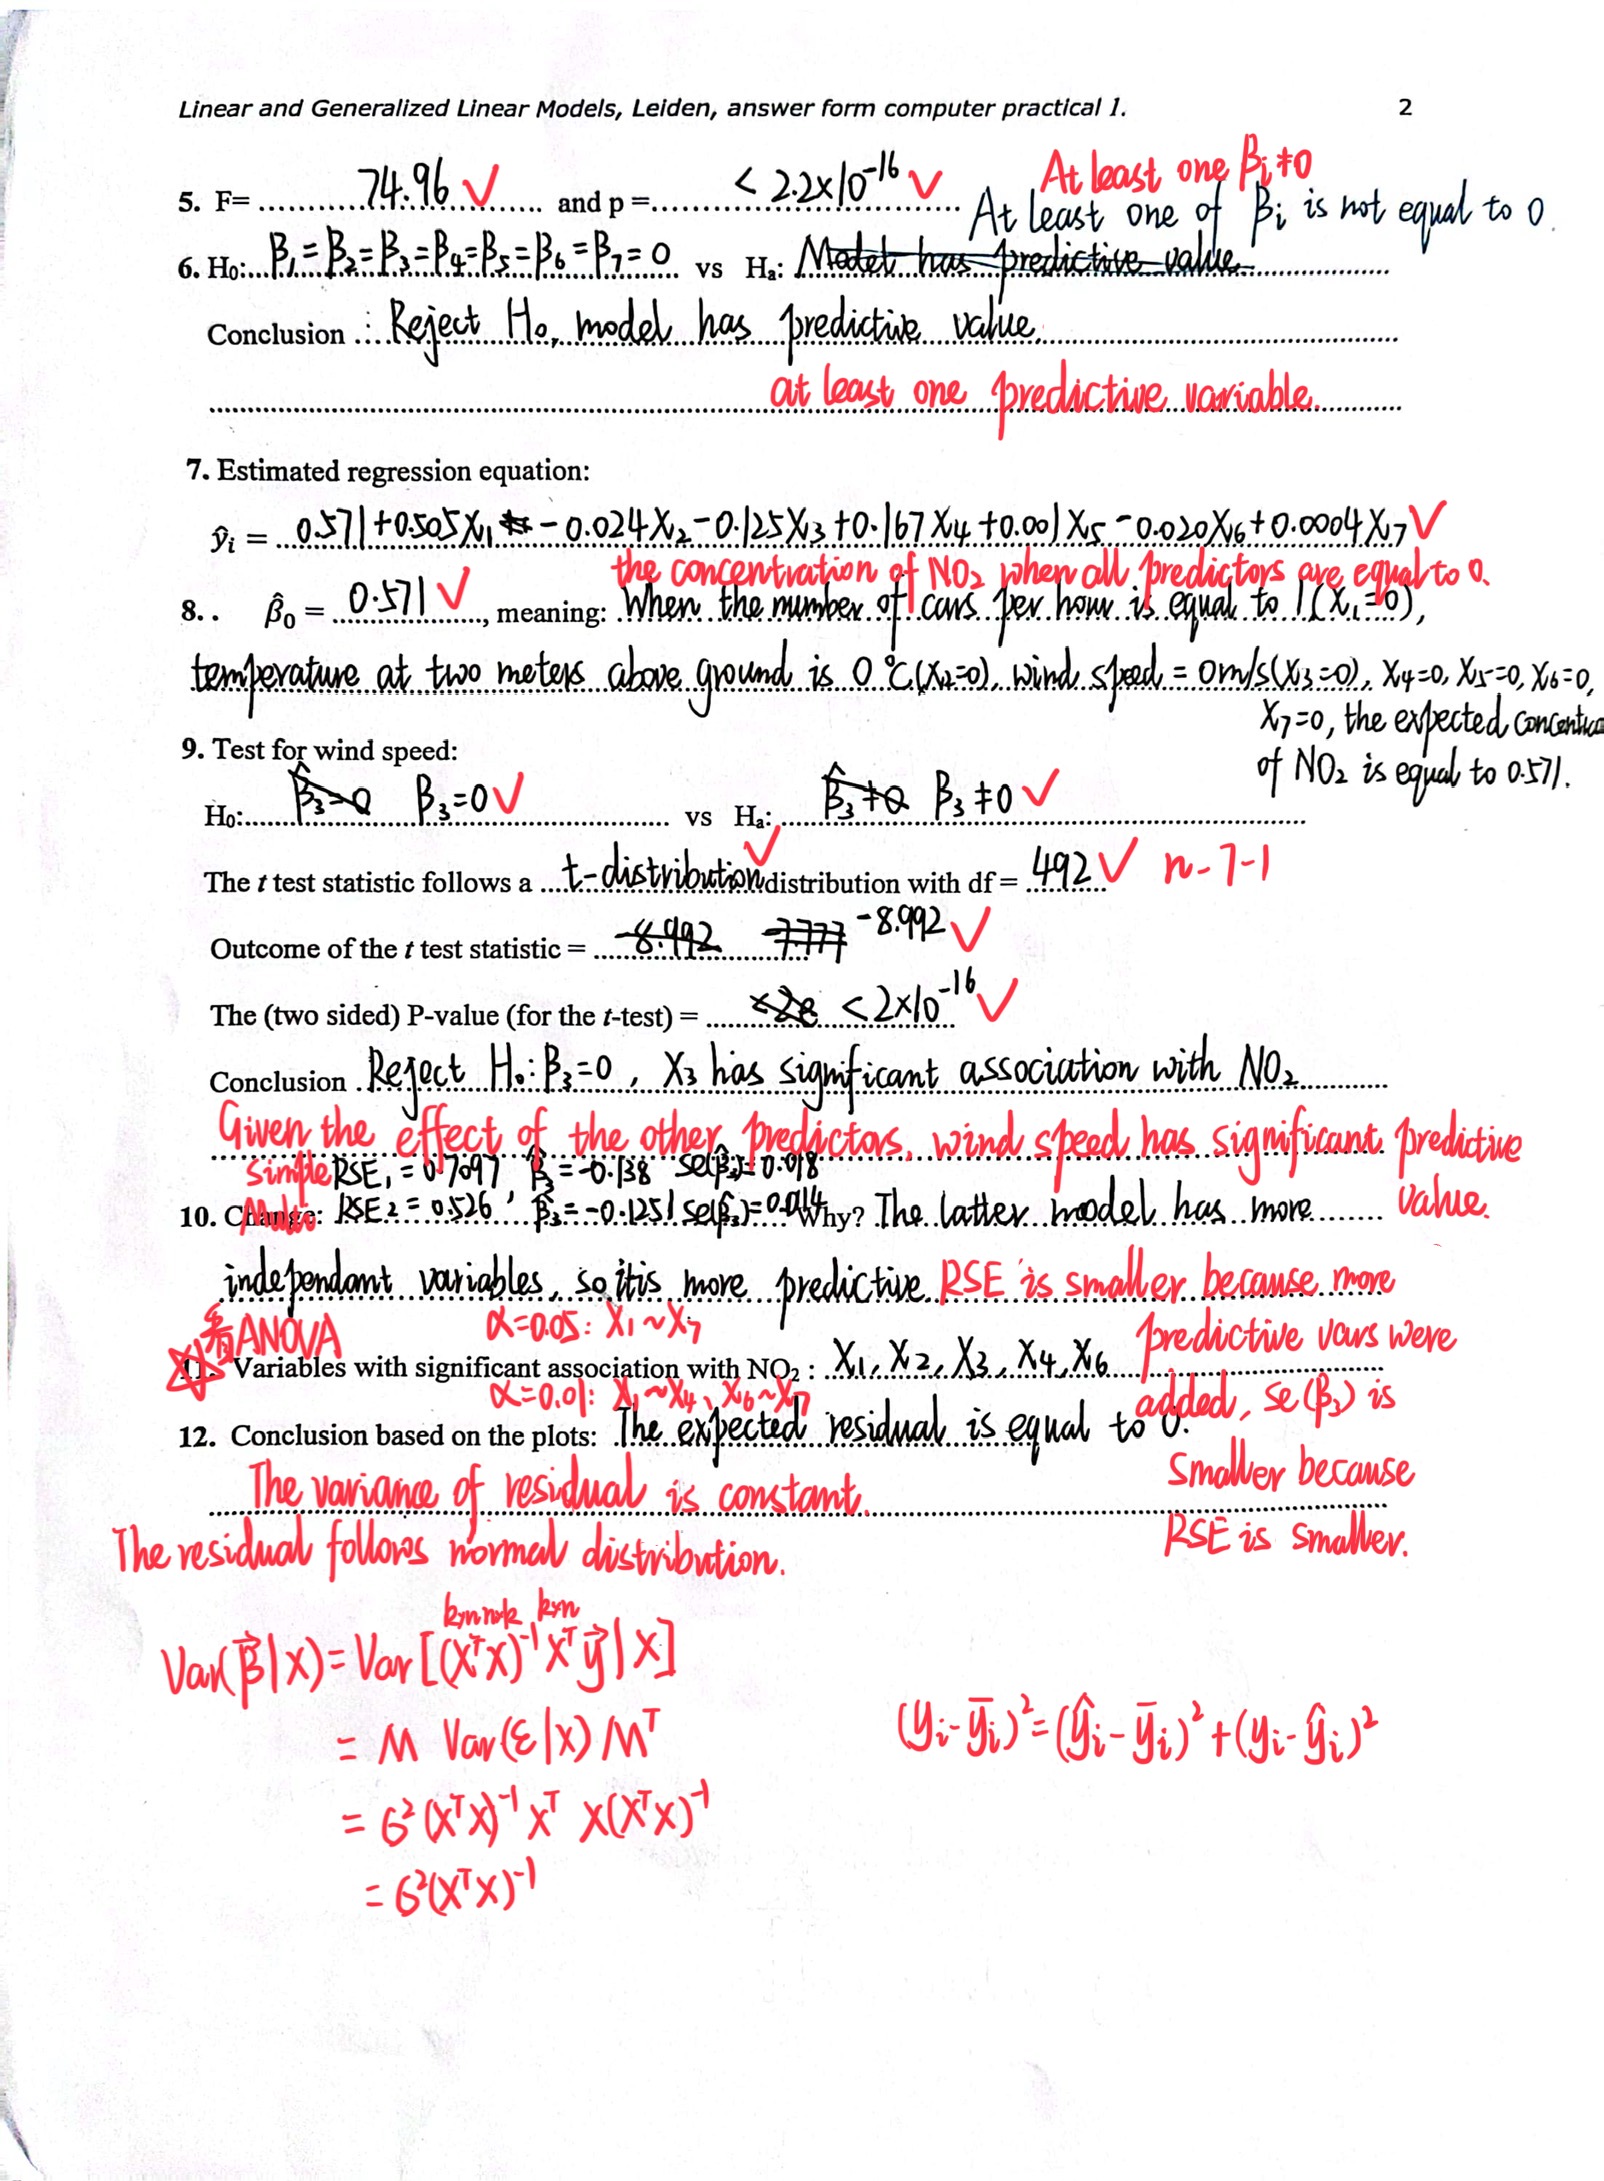 Linear and Generalized Linear Models, Leiden, answer form computer practical 1. 2
At least one βi≠0
5. F= 74.96 ✓ and p = < 2.2×10⁻¹⁶ ✓ At least one of βi is not equal to 0.
6. H₀: β₁=β₂=β₃=β₄=β₅=β₆=β₇=0 vs Hₐ: Model has predictive value
Conclusion : Reject H₀, model has predictive value
at least one predictive variable.
7. Estimated regression equation:
ŷᵢ = 0.571+0.505X₁ -0.024X₂-0.125X₃+0.167X₄+0.001X₅-0.020X₆+0.0004X₇ ✓
the concentration of NO₂ when all predictors are equal to 0.
8. . β̂₀ = 0.571 ✓, meaning: When the number of cars per hour is equal to 1(X₁=0),
temperature at two meters above ground is 0℃(X₂=0), wind speed = 0m/s(X₃=0), X₄=0, X₅=0, X₆=0,
X₇=0, the expected
of NO₂ is equal to 0.571.
9. Test for wind speed:
H₀: β̂₃=0 β₃=0 ✓ vs Hₐ: β̂₃≠0 β₃≠0 ✓
The t test statistic follows a t-distribution ✓ distribution with df = 492 ✓ n-7-1
Outcome of the t test statistic = -8.992 -7.777 -8.992 ✓
The (two sided) P-value (for the t-test) = <2e <2×10⁻¹⁶ ✓
Conclusion Reject H₀: β₃=0, X₃ has significant association with NO₂
Given the effect of the other predictors, wind speed has significant predictive
value.
simple RSE₁ = 0.7097 β̂₃=-0.138 se(β̂₃)=0.018
10. Change: RSE₂ = 0.526, β̂₃=-0.1251 se(β̂₃)=0.014 Why? The latter model has more
independant variables, so it is more predictive. RSE is smaller because more
predictive vars were
added, se(β₃) is
smaller because
RSE is smaller.
看ANOVA α=0.05: X₁~X₇
11. Variables with significant association with NO₂ : X₁, X₂, X₃, X₄, X₆
α=0.01: X₁~X₄、X₆~X₇
12. Conclusion based on the plots: The expected residual is equal to 0.
The variance of residual is constant.
The residual follows normal distribution.
k×n n×k k×n
Var(β⃗|X)=Var[(XᵀX)⁻¹Xᵀy⃗|X]
= M Var(ε|X)Mᵀ
= 6²(XᵀX)⁻¹Xᵀ X(XᵀX)⁻¹
= 6²(XᵀX)⁻¹
(yᵢ-ȳᵢ)²=(ŷᵢ-ȳᵢ)²+(yᵢ-ŷᵢ)²